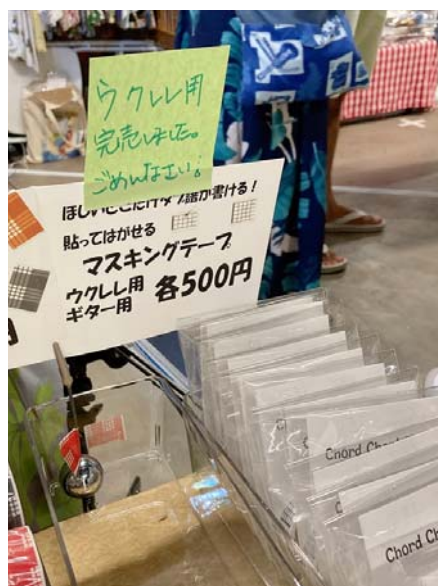 ウクレレ用
完売しました。
ごめんなさい!
ほしいとこだけタブ譜が書ける！
貼ってはがせる
マスキングテープ
ウクレレ用
ギター用
各500円
円
Chord
Chord Ch